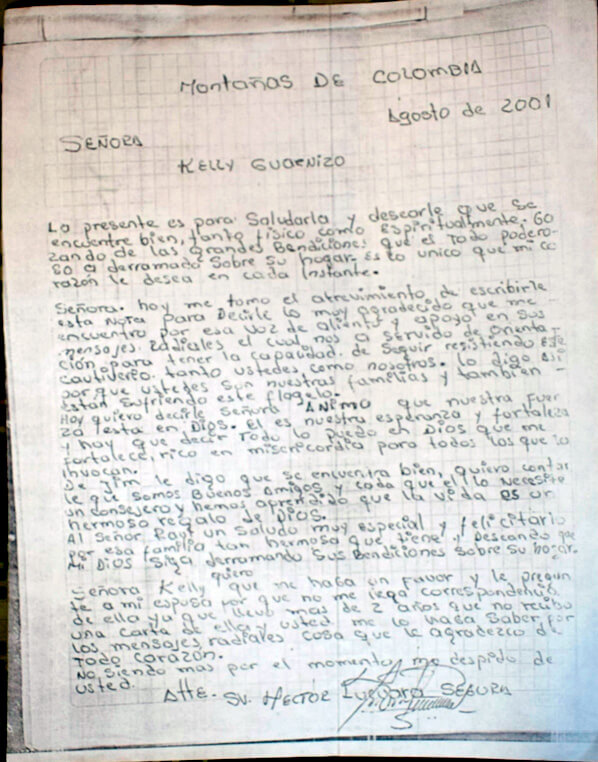 Montañas DE COLOMBIA
Agosto de 2001
SEÑORA
KELLY GUARNIZO
La presente es para Saludarla y desearle que se
encuentre bien, tanto fisico como Espiritualmente. Go
zando de las grandes Bendiciones que el Todo podero-
so a derramado Sobre su hogar. Es lo unico que mi co
razón le desea en cada instante.
Señora. hoy me tomo el atrevimiento, de escribirle
esta Nota para Decirle lo muy agradecido que me
encuentro por esa voz de aliento y apoyo en sus
mensajes radiales el cual nos a servido de orienta-
ción para tener la capacidad. de seguir resistiendo este
cautiverio. tanto ustedes, como nosotros. lo digo asi
por que ustedes son nuestras familias y tambien -
estan sufriendo este flagelo.
Hoy quiero decirle Señora ANIMO que nuestra fuer
za esta en Dios. El es nuestra esperanza y fortaleza
y hay que decir Todo lo puedo en Dios que me
fortalece, rico en misericordia para todos los que lo
invocan.
De Jim le digo que se encuentra bien, quiero contar
le que somos Buenos Amigos y cada que el lo necesite
un consejero y hemos aprendido que la vida es un
hermoso regalo de Dios.
Al Señor Raul un Saludo muy especial y felicitarlo
por esa familia tan hermosa que tiene, Descando que
Mi Dios siga derramando sus Bendiciones Sobre su hogar.
quiero
Señora Kelly que me haga un Favor y le pregun
te a mi esposa por que no me llega correspondencia
de ella ya que llevo mas de 2 años que no recibo
una carta de ella y usted me lo haga Saber por
los mensajes radiales cosa que le agradezco de
Todo corazón.
No siendo mas por el momento, me despido de
usted.
Atte. SV. HECTOR Luevara SEGURA